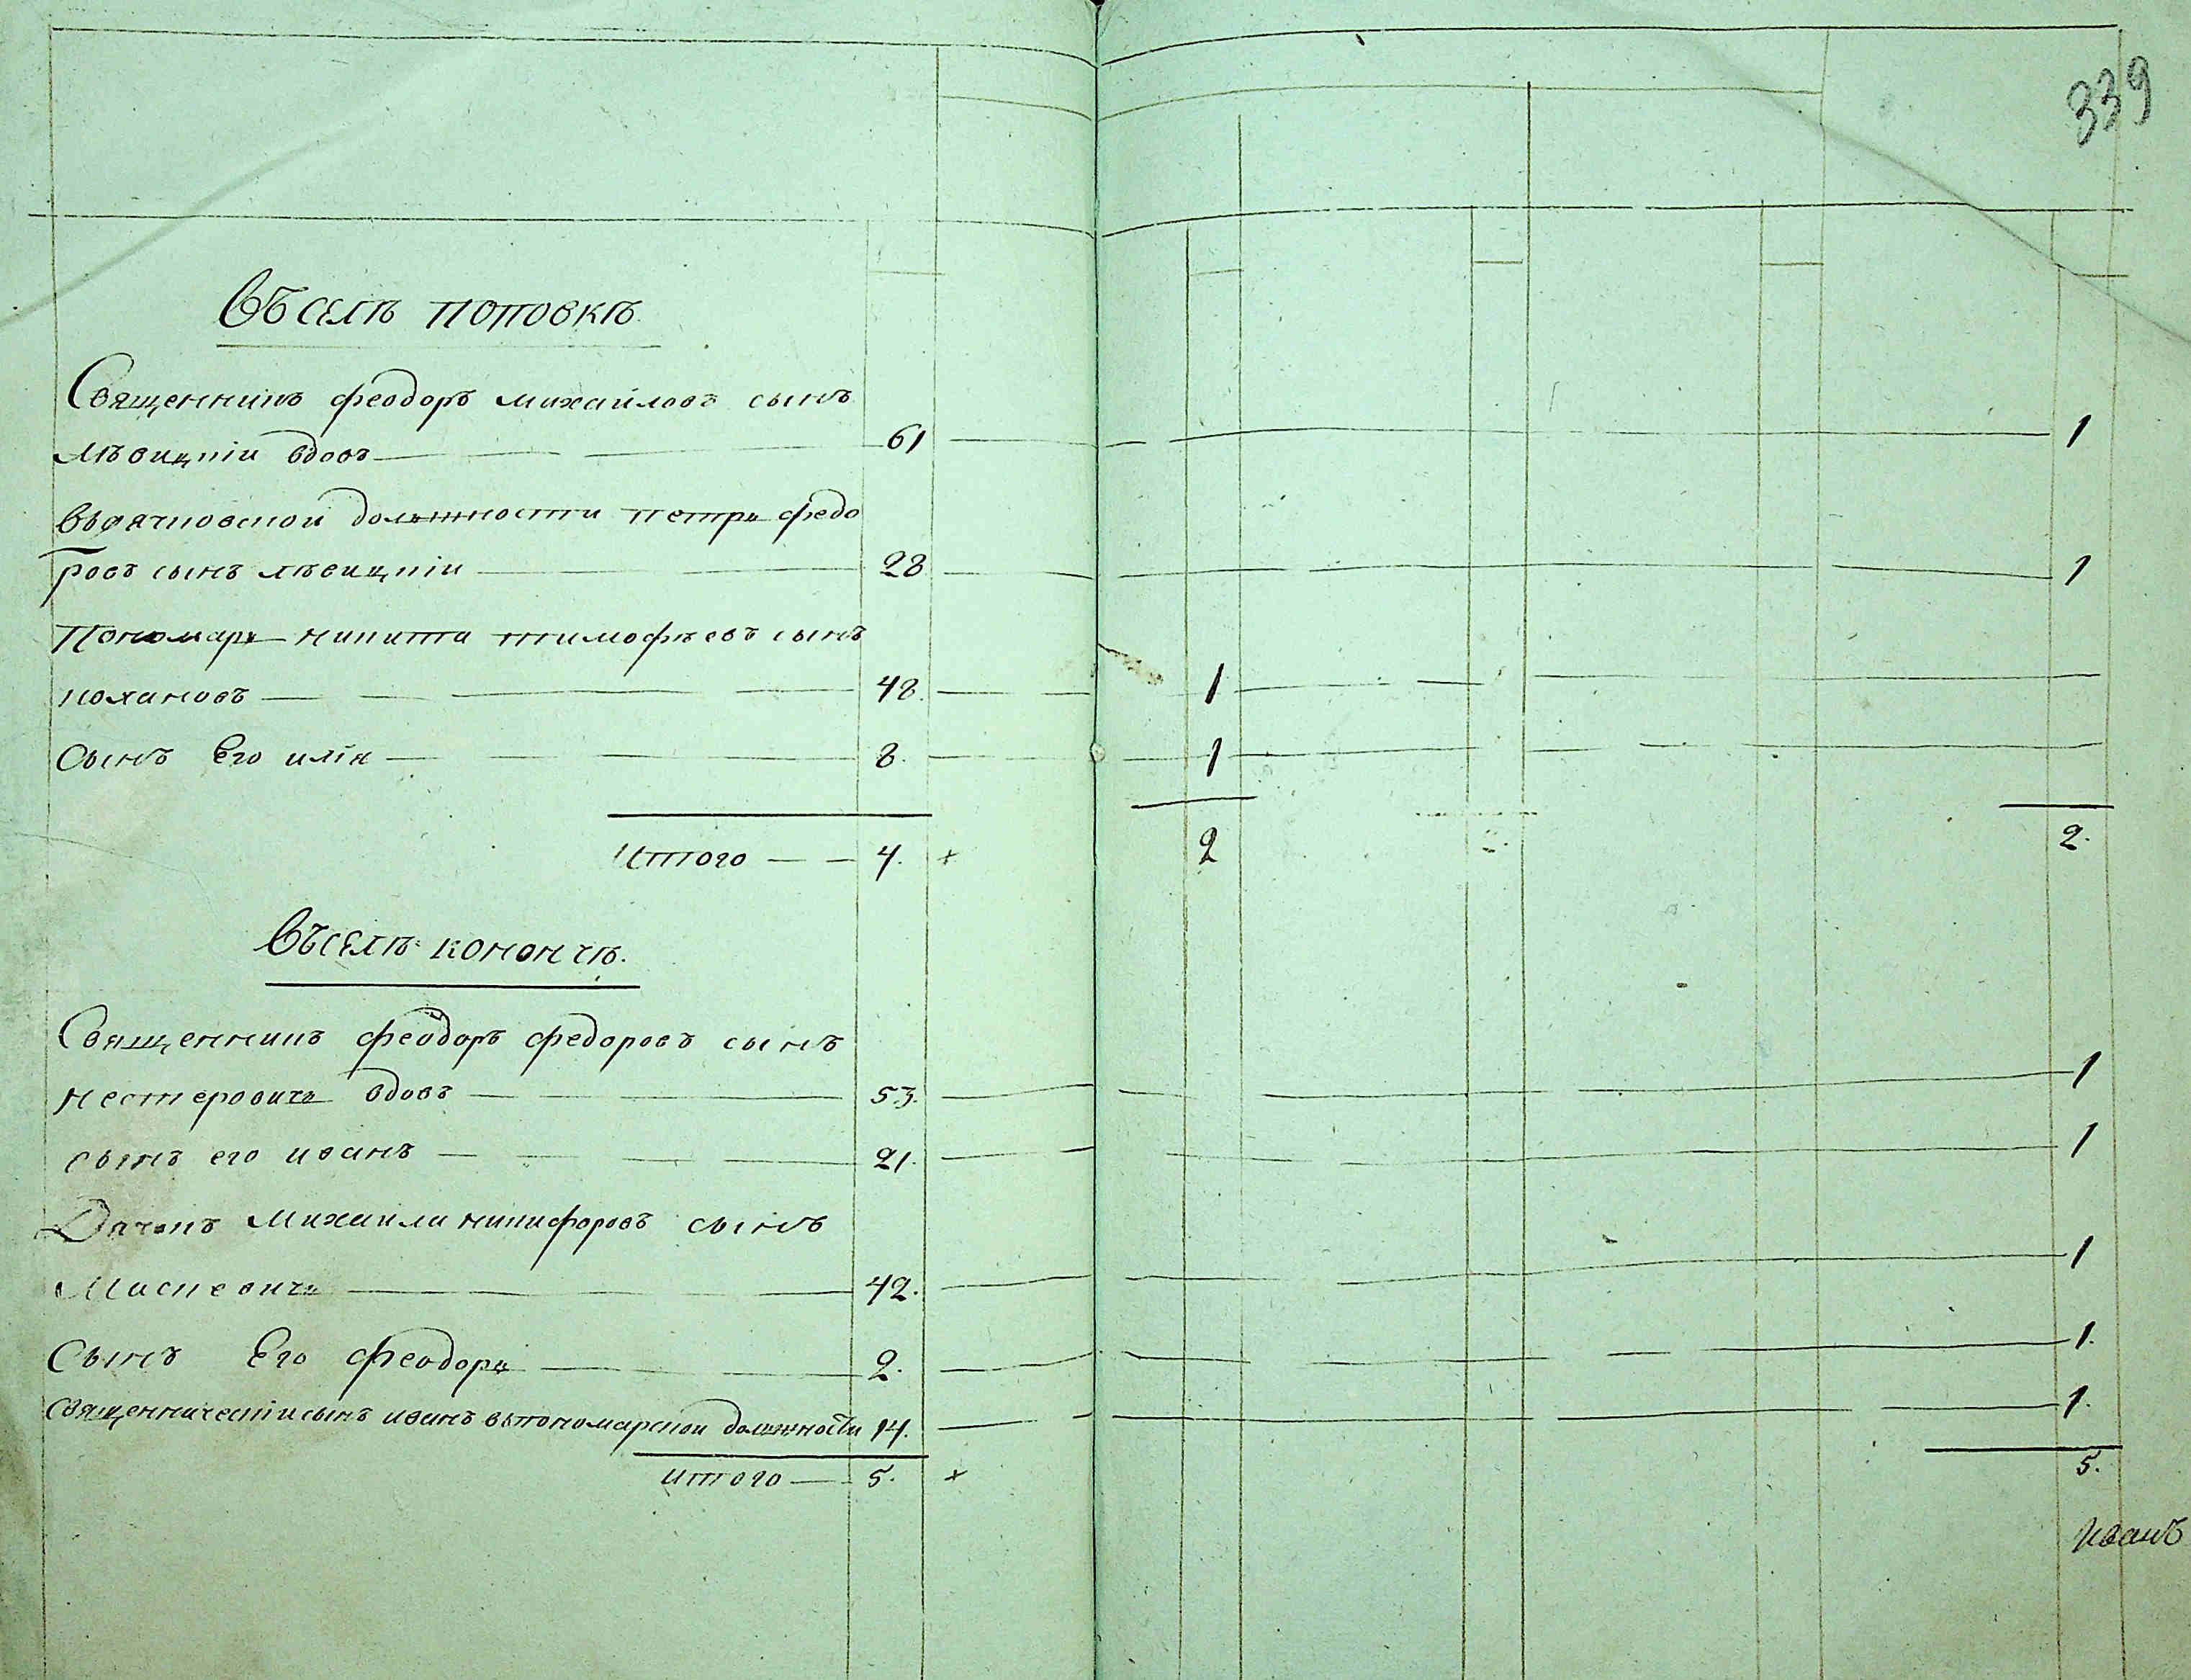 339
Въ селѣ поповкѣ
Священникъ феодоръ михайловъ сынъ
лѣвицкіи вдовъ 61 1
Въдячковской должности петръ федо
ровъ сынъ лѣвицкіи 28 1
Пономарь никита тимофѣевъ сынъ
кохановъ 48. 1
Сынъ Его илїя 8. 1
Итого 4. + 2 2.
Въ селѣ конончѣ.
Священникъ феодоръ федоровъ сынъ
нестеровичь вдовъ 53. 1
сынъ его иванъ 21. 1
Дячокъ михаила никифоровъ сынъ
Маскевичь 42. 1
Сынъ Его феодоръ 2. 1.
священническіи сынъ иванъ въпономарской должности 14. 1.
итого 5. + 5.
Иванъ